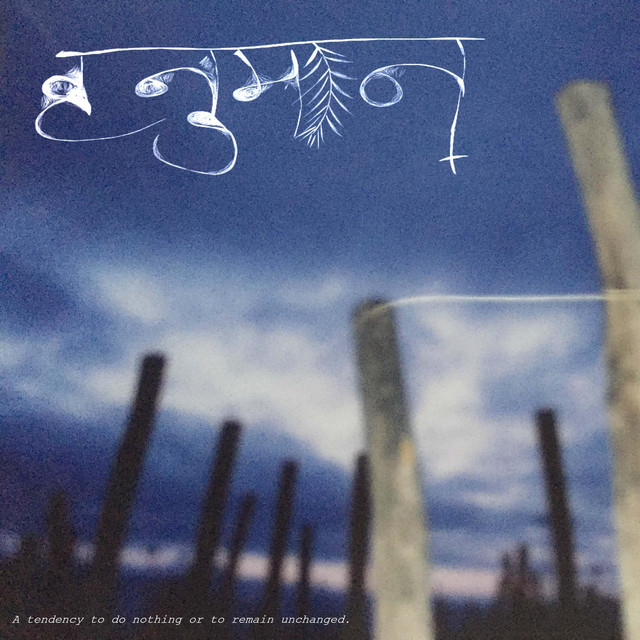 हनुमान
A tendency to do nothing or to remain unchanged.